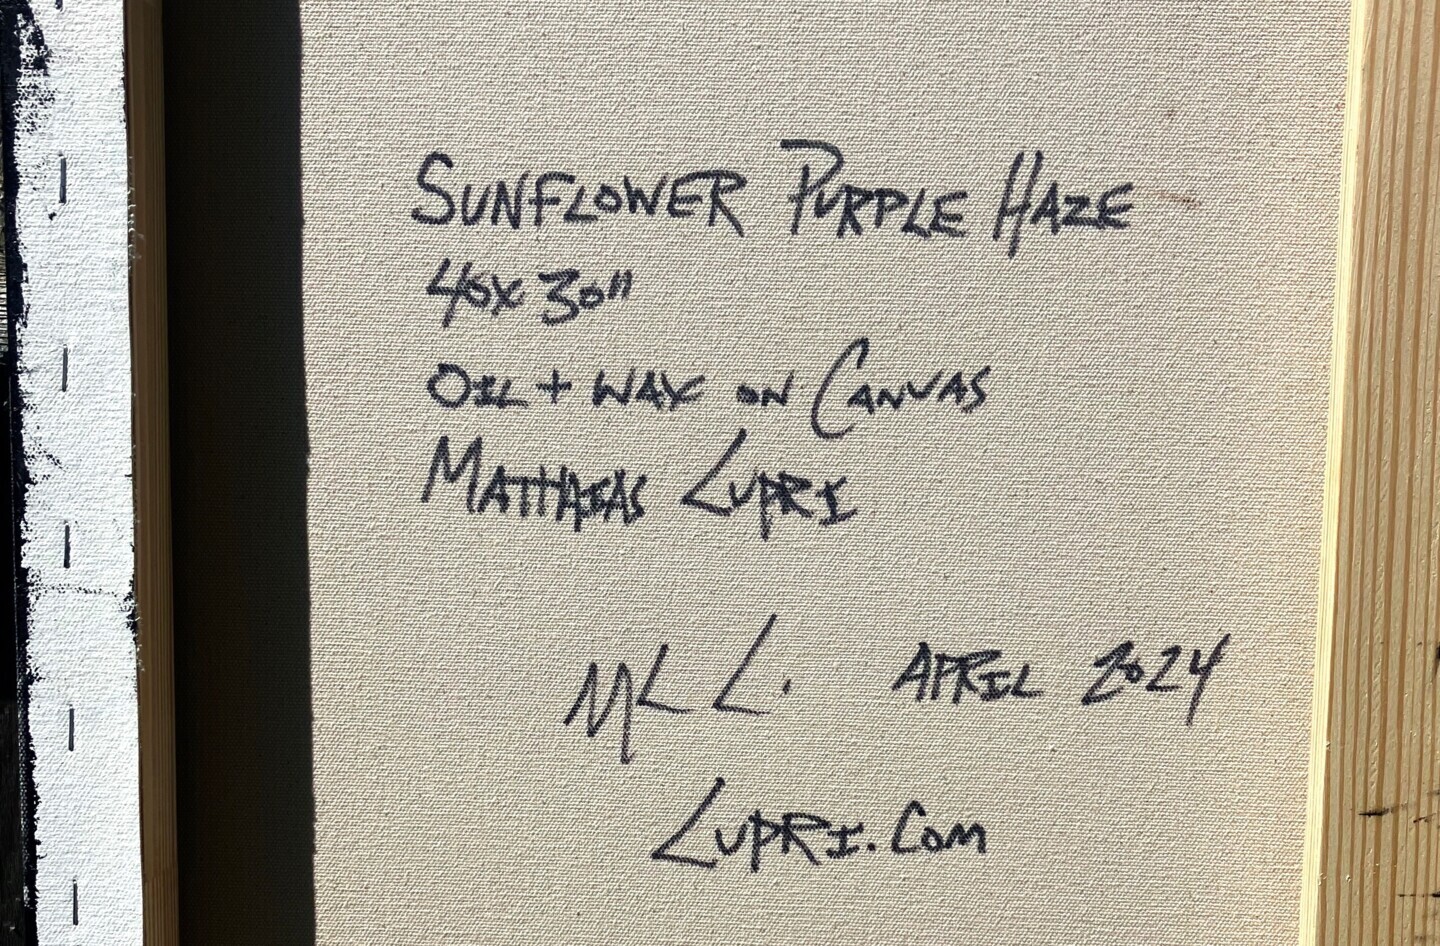 SUNFLOWER PURPLE HAZE
40x30"
OIL + WAX ON CANVAS
MATTHAIAS LUPRI
ML L. APRIL 2024
LUPRI.COM